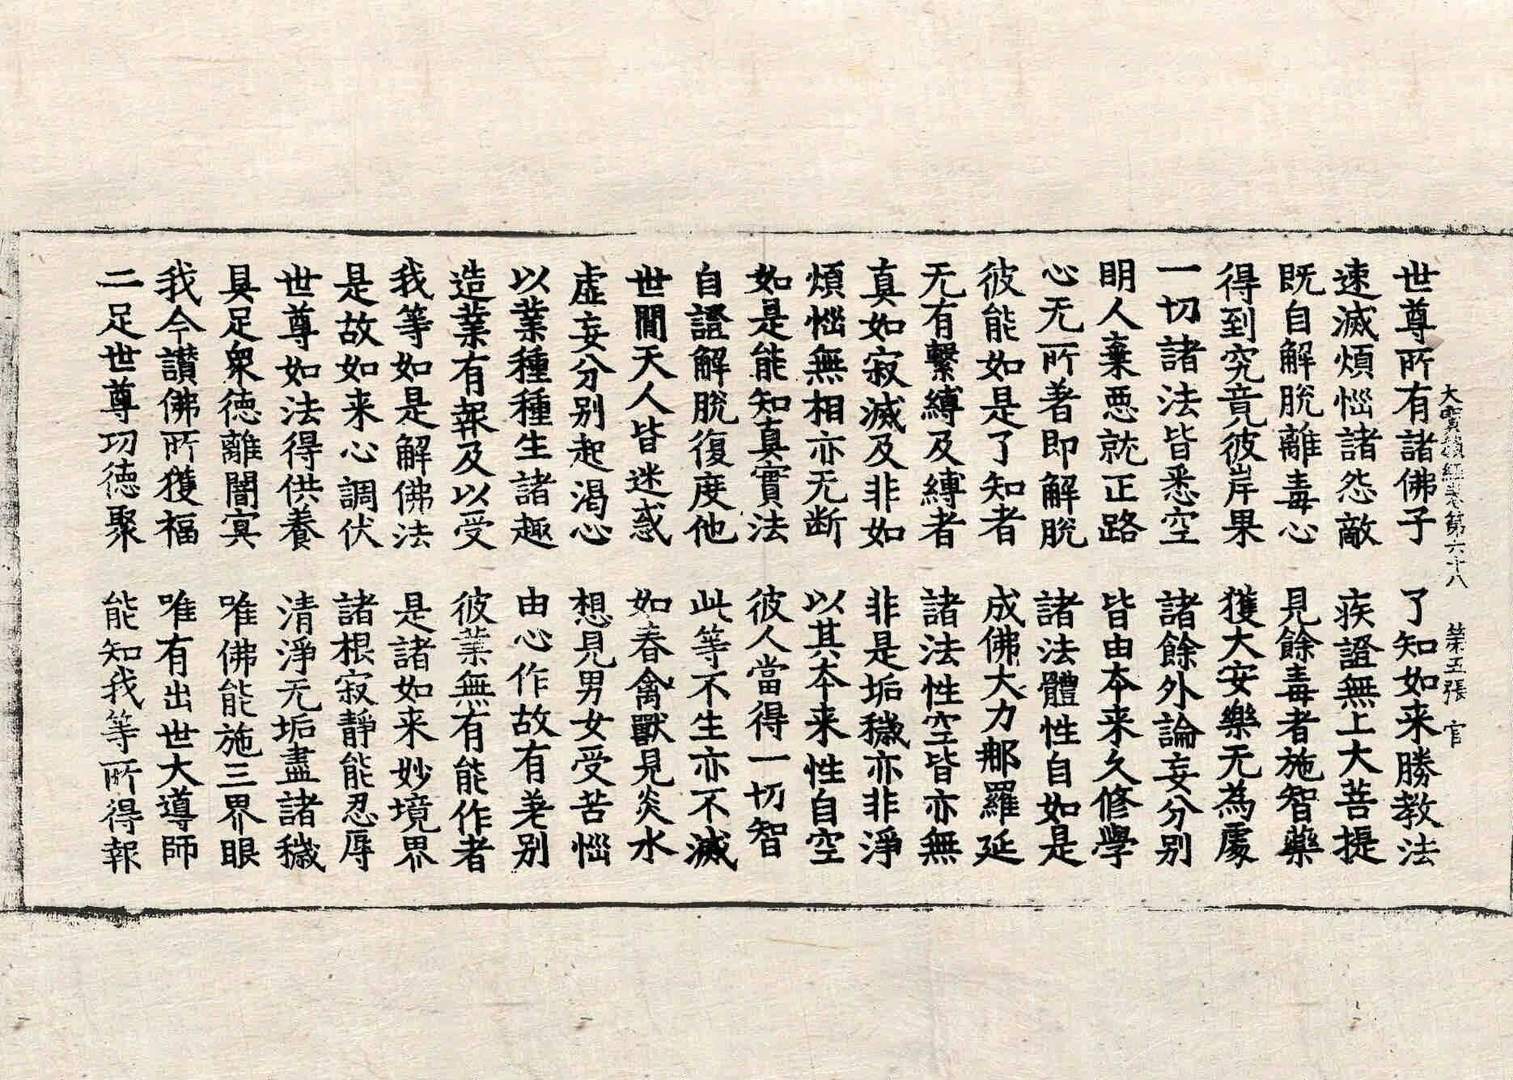 大寶積經卷第六十八 第五張 官
世尊所有諸佛子 了知如来勝教法
速滅煩惱諸怨敵 疾證無上大菩提
既自解脫離毒心 見餘毒者施智藥
得到究竟彼岸果 獲大安樂无為處
一切諸法皆悉空 諸餘外論妄分別
明人棄惡就正路 皆由本来久修學
心无所著即解脫 諸法體性自如是
彼能如是了知者 成佛大力那羅延
无有繫縛及縛者 諸法性空皆亦無
真如寂滅及非如 非是垢穢亦非淨
煩惱無相亦无断 以其本来性自空
如是能知真實法 彼人當得一切智
自證解脫復度他 此等不生亦不滅
世間天人皆迷惑 如春禽獸見炎水
虛妄分別起渴心 想見男女受苦惱
以業種種生諸趣 由心作故有差別
造業有報及以受 彼業無有能作者
我等如是解佛法 是諸如来妙境界
是故如来心調伏 諸根寂靜能忍辱
世尊如法得供養 清淨无垢盡諸穢
具足衆德離闇冥 唯佛能施三界眼
我今讃佛所獲福 唯有出世大導師
二足世尊功德聚 能知我等所得報